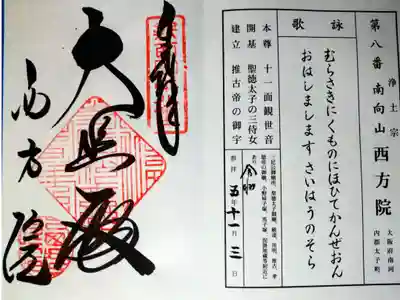 浄土宗
第八番 南向山 西方院
大阪府南河
内郡太子町
詠歌
むらさきにくものにほひてかんぜおん
おはしましますさいはうのそら
本尊 十一面観世音
開基 聖徳太子の三侍女
建立 推古帝の御字
参拝 令和五年十一月三日
大悲殿
西方院